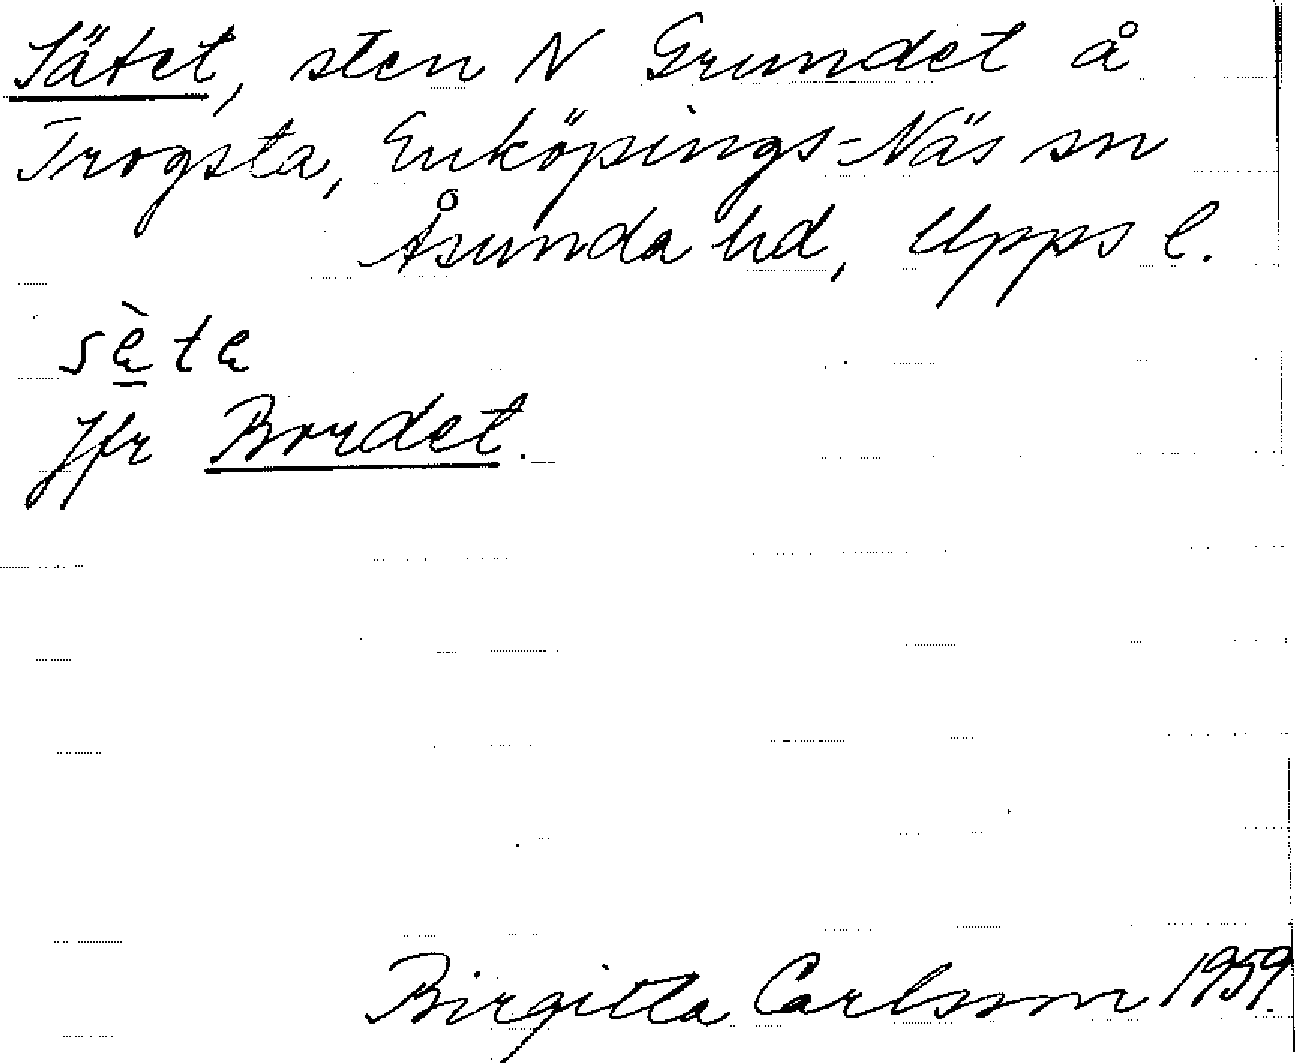 Sätet, sten N Grundet å
Trogsta, Enköpings-Näs sn
Åsunda hd, Upps l.
sè̱te
Jfr Bordet.
Birgitta Carlsson 1959.